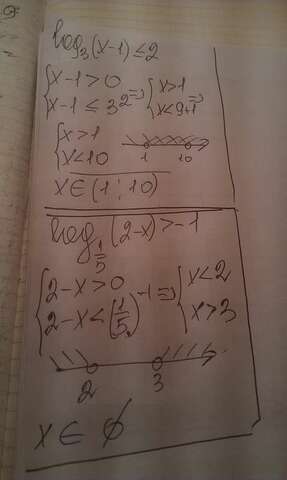 log₃(x-1) ≤ 2
{x-1>0 => {x>1
{x-1 ≤ 3² => {x<9+1 =>
{x>1
{x<10
1 10
x∈(1;10)
log_{1/5}(2-x)>-1
{2-x>0 => {x<2
{2-x<(1/5)^{-1} => {x>3
2 3
x∈ ∅